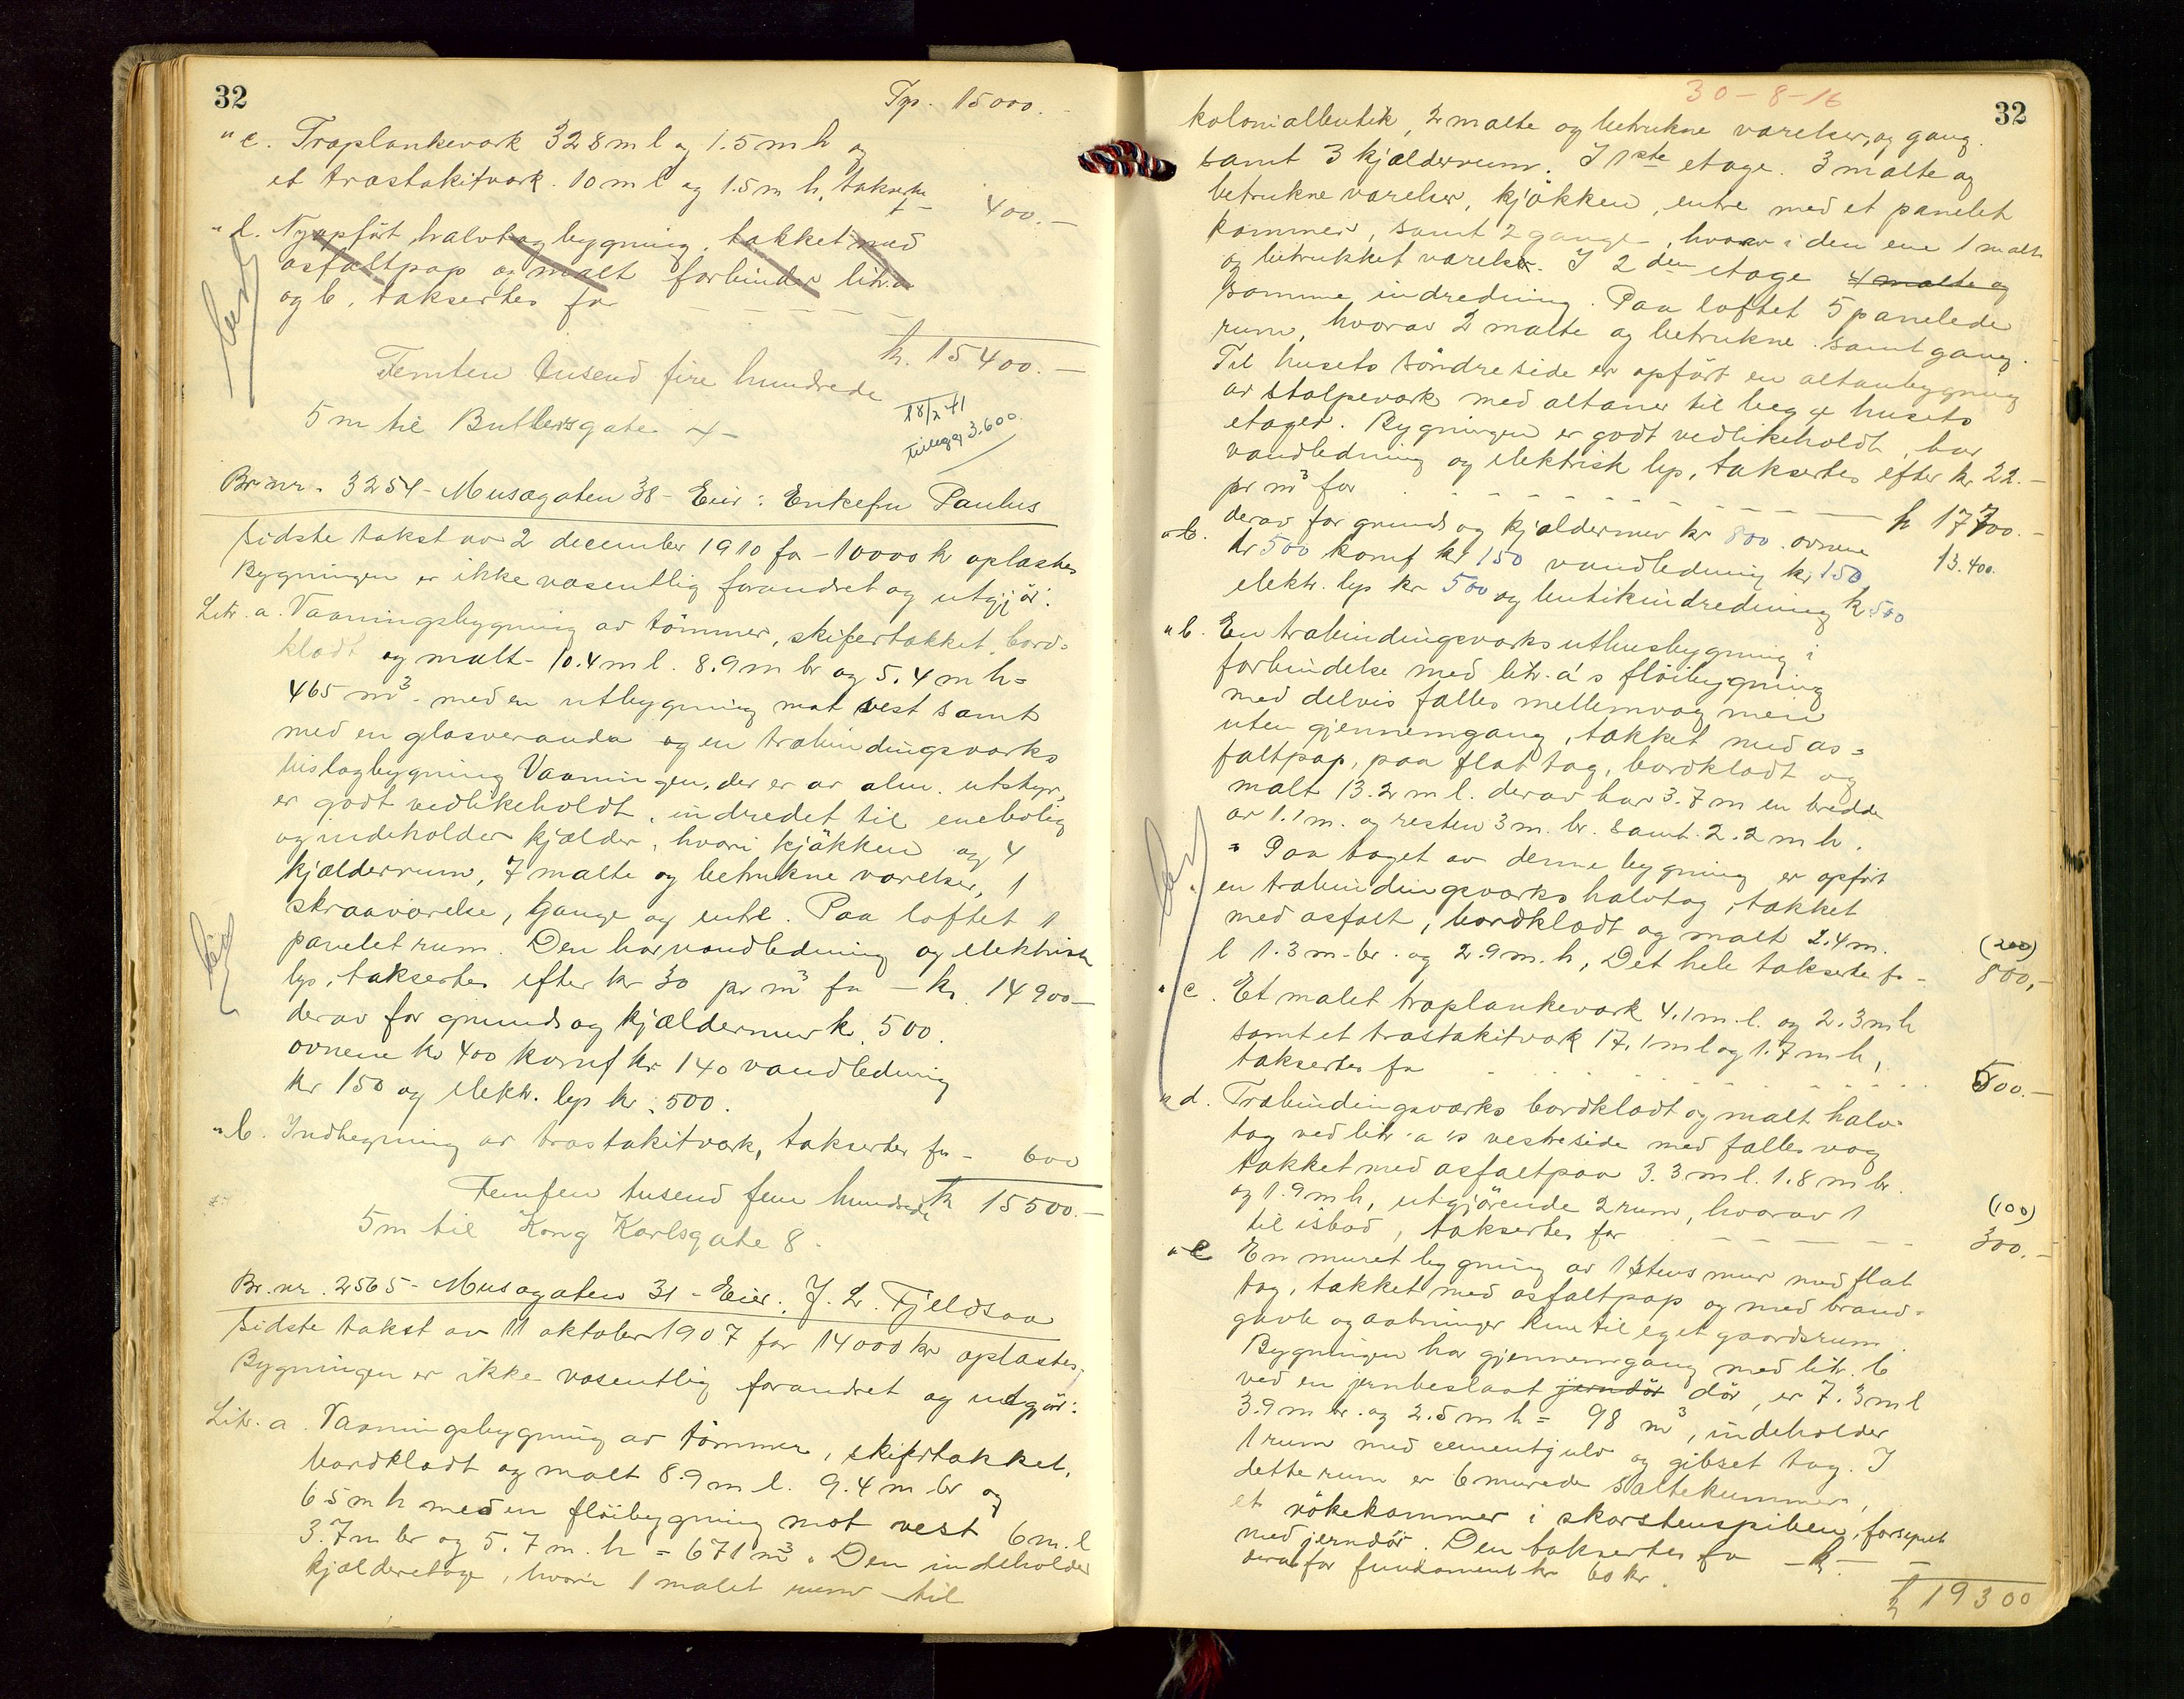 32
Tp. 15000.-
" c. Træplankeværk 32 8 m l og 1.5 m h og
et træstakitværk. 10 m l og 1.5 m h, takseres
f - 400.-
" d. Nyopført halvtag bygning, tækket med
asfaltpap og malt forbinder litr. a
og b, takseres for - - - - -
kr. 15400.-
Femten tusend fire hundrede
18/2 41
Tillegg 3.600.
5 m til Butlersgate 4 -
Br. nr. 3254 - Musægaten 38 - Eier: Enkefru Paulus
Sidste takst av 2 december 1910 for - 10000 kr oplæstes
Bygningen er ikke væsentlig forandret og utgjör:
Litr. a. Vaaningsbygning av tömmer, skifertækket, bord-
klædt og malt - 10.4 m l. 8.9 m br og 5.4 m h =
465 m³. med en utbygning mot vest samt
med en glasveranda og en træbindingsværks
bislagbygning Vaaningen, der er av alm. utstyr,
er godt vedlikeholdt, indredet til enebolig
og indeholder kjælder, hvori kjökken og 4
kjælderrum, 7 malte og betrukne værelser, 1
skraaværelse, gange og entre. Paa loftet 1
panelet rum. Den har vandledning og elektrisk
lys, takseres efter kr 30 pr m³ for - kr. 14900 -
derav for grund og kjældermur kr. 500.
ovnene kr 400 komf kr 140 vandledning
kr 150 og elektr. lys kr. 500.
" b. Indhegning av træstakitværk, takseres for - 600
Femten tusend fem hundrede kr 15500.-
5 m til Kong Karlsgate 8.
Br. nr. 2565 - Musægaten 31 - Eier. J. L. Fjeldsaa
Sidste takst av 11 oktober 1907 for 14000 kr oplæstes,
Bygningen er ikke væsentlig forandret og utgjör:
Litr. a. Vaaningsbygning av tömmer, skifertækket,
bordklædt og malt 8.9 m l. 9.4 m br og
6.5 m h med en flöibygning mot vest 6 m. l
3.7 m br og 5.7 m. h = 671 m³. Den indeholder
kjælderetage, hvori 1 malet rum til
30-8-16
32
kolonialbutik, 2 malte og betrukne værelser, og gang.
samt 3 kjælderrum. I 1ste etage. 3 malte og
betrukne værelser, kjökken, entre med et panelet
kammer, samt 2 gange, hvorav i den ene 1 malt
og betrukket værelse. I 2den etage 4 malte og
samme indredning. Paa loftet 5 panelede
rum, hvorav 2 malte og betrukne samt gang.
Til husets söndre side er opfört en altanbygning
av stolpeverk med altaner til begge husets
etager. Bygningen er godt vedlikeholdt, har
vandledning og elektrisk lys, takseres efter kr 22.-
pr m³ for - - - - - - kr 17700.-
derav for grund og kjældermur kr 800. ovnene
13.400.
kr 500 komf kr 150 vandledning kr 150,
elektr. lys kr 500 og butikindredning kr 500
" b. En træbindingsværks uthusbygning i
forbindelse med litr. a's flöibygning
med delvis fælles mellemvæg men
uten gjennemgang, tækket med as-
faltpap, paa flat tag, bordklædt og
malt 13.2 m l. derav har 3.7 m en bredde
av 1.1 m. og resten 3 m. br. samt 2.2 m h.
Paa taget av denne bygning er opfört
en træbindingsværks halvtag, tækket
med asfalt, bordklædt og malt 2.4 m.
l 1.3 m. br. og 2.9 m. h, Det hele takseres for -
(200)
800,-
" c. Et malet træplankeværk 4.1 m. l. og 2.3 m h
samt et træstakitværk 17.1 m l og 1.7 m h,
takseres for 500.-
" d. Træbindingsværks bordklædt og malt halv-
tag ved litr. a's vestre side med fælles væg
tækket med asfaltpap 3.3 m l. 1.8 m br.
og 1.9 m h, utgjörende 2 rum, hvorav 1
(100)
til isbod, takseres for - - - - - 300.-
" e En muret bygning av 1 stens mur med flat
tag, tækket med asfaltpap og med brand-
gavle og aabninger kun til eget gaardsrum.
Bygningen har gjennemgang med litr. b
ved en jernbeslaat jerndör dör, er 7.3 m l
3.9 m br. og 2.5 m h = 98 m³, indeholder
1 rum med cementgulv og gibset tag. I
dette rum er 6 murede saltekummer,
et rökekammer i skorstenspiben, forsynet
med jerndör. Den takseres for - kr. -
derav for fundament kr 60 kr.
kr 19300